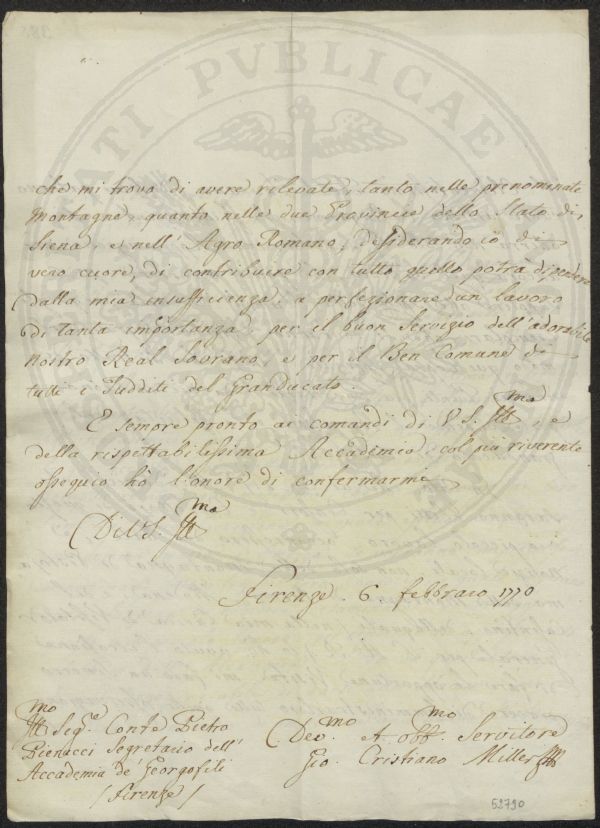 PUBLICAE
che mi trovo di avere rilevate, tanto nelle prenominate
Montagne, quanto nelle due Provincie dello Stato di
Siena, e nell' Agro Romano; desiderando io di
vero cuore, di contribuire con tutto quello potrà dipendere
dalla mia insufficienza, a perfezionare un lavoro
di tanta importanza, per il buon Servizio dell'adorabile
nostro Real Sovrano, e per il Ben Comune di
tutti i Sudditi del Granducato.
E sempre pronto ai comandi di V.S. Ill.mo, e
della rispettabilissima Accademia, col più riverente
ossequio hò l'onore di confermarmi
Di V.S. Ill.mo
Firenze. 6. febbraio 1770
Ill.mo Sig.e Conte Pietro
Segretario dell'
Accademia de' Georgofili
/Firenze/
Dev.mo et Obb.mo Servitore
Gio. Cristiano Miller
52790